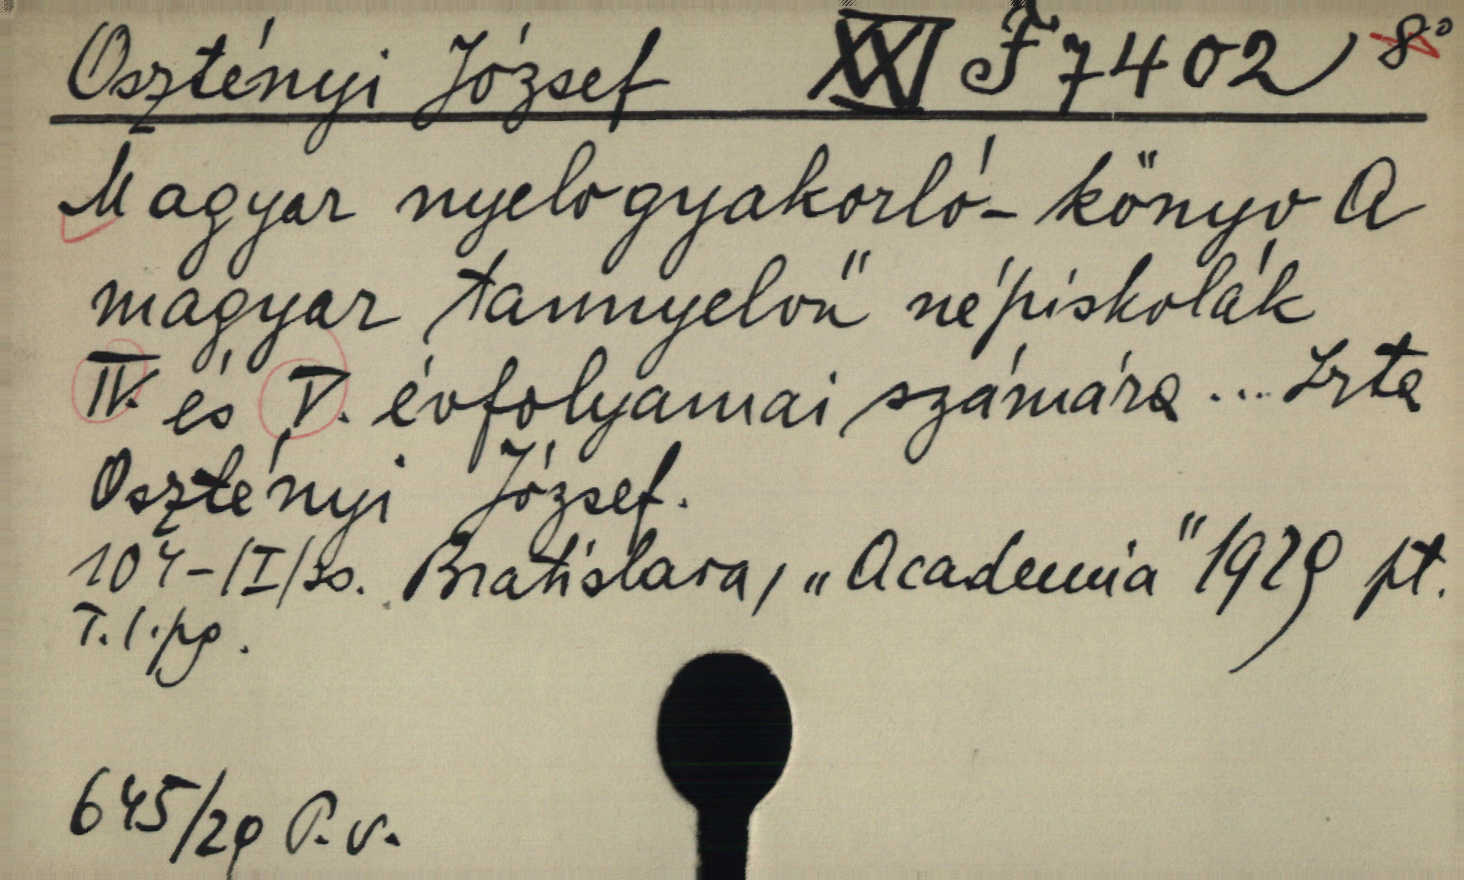 Osztényi József XXI F 7402, 8°
Magyar nyelvgyakorló-könyv A
magyar tannyelvű népiskolák
IV. és V. évfolyamai számára ... Irta
Osztényi József.
104-/I/ss. Bratislava, „Academia" 1929 pt.
T. l. pg.
645/29 P. v.